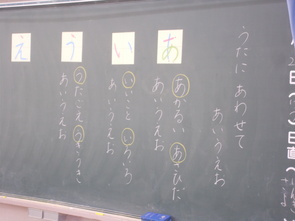 うたに あわせて
あいうえお
あ
あかるい あさひだ
あいうえお
い
いいこと いろいろ
あいうえお
う
うたごえ うきうき
あいうえお
え